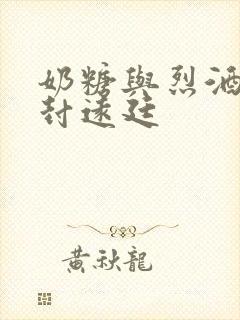 奶糖與烈酒
封遠廷
黃秋龍